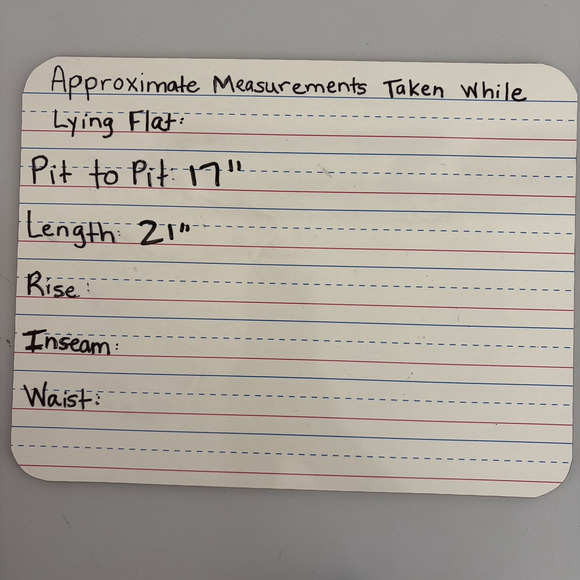 Approximate Measurements Taken While
Lying Flat:
Pit to Pit: 17"
Length: 21"
Rise:
Inseam:
Waist: